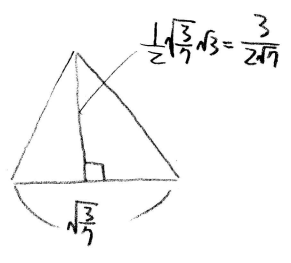 1/2 √(3/7) √3 = 3/(2√7)
√(3/7)